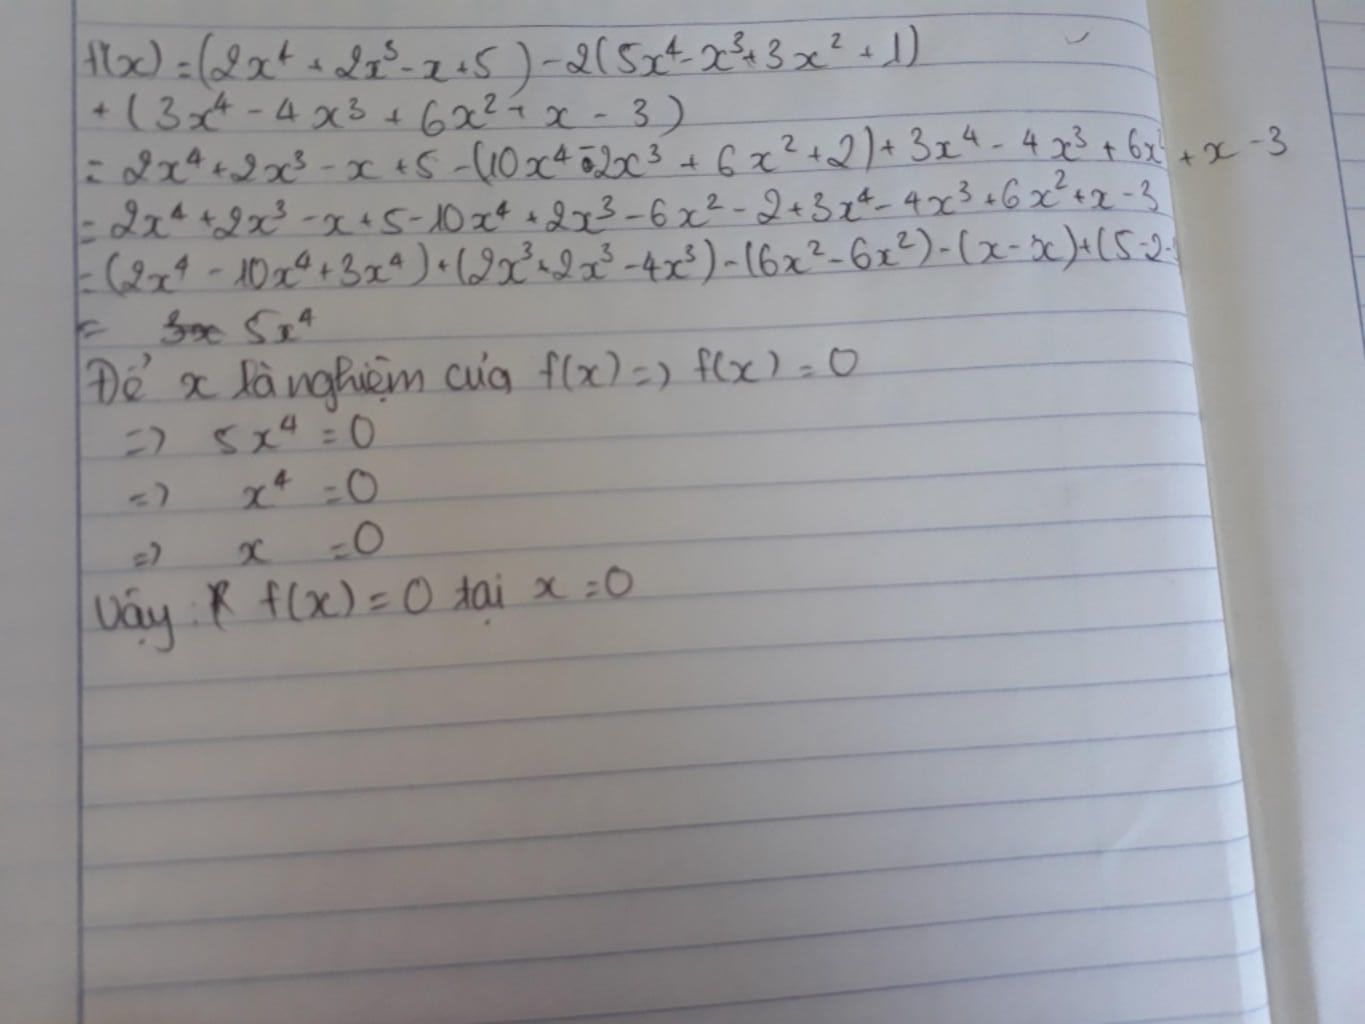 f(x) = (2x⁴ + 2x³ - x + 5) - 2(5x⁴ - x³ + 3x² + 1)
+ (3x⁴ - 4x³ + 6x² + x - 3)
= 2x⁴ + 2x³ - x + 5 - (10x⁴ - 2x³ + 6x² + 2) + 3x⁴ - 4x³ + 6x² + x - 3
= 2x⁴ + 2x³ - x + 5 - 10x⁴ + 2x³ - 6x² - 2 + 3x⁴ - 4x³ + 6x² + x - 3
= (2x⁴ - 10x⁴ + 3x⁴) + (2x³ + 2x³ - 4x³) - (6x² - 6x²) - (x - x) + (5 - 2 -
= 5x⁴
Để x là nghiệm của f(x) => f(x) = 0
=> 5x⁴ = 0
=> x⁴ = 0
=> x = 0
Vậy : f(x) = 0 tại x = 0